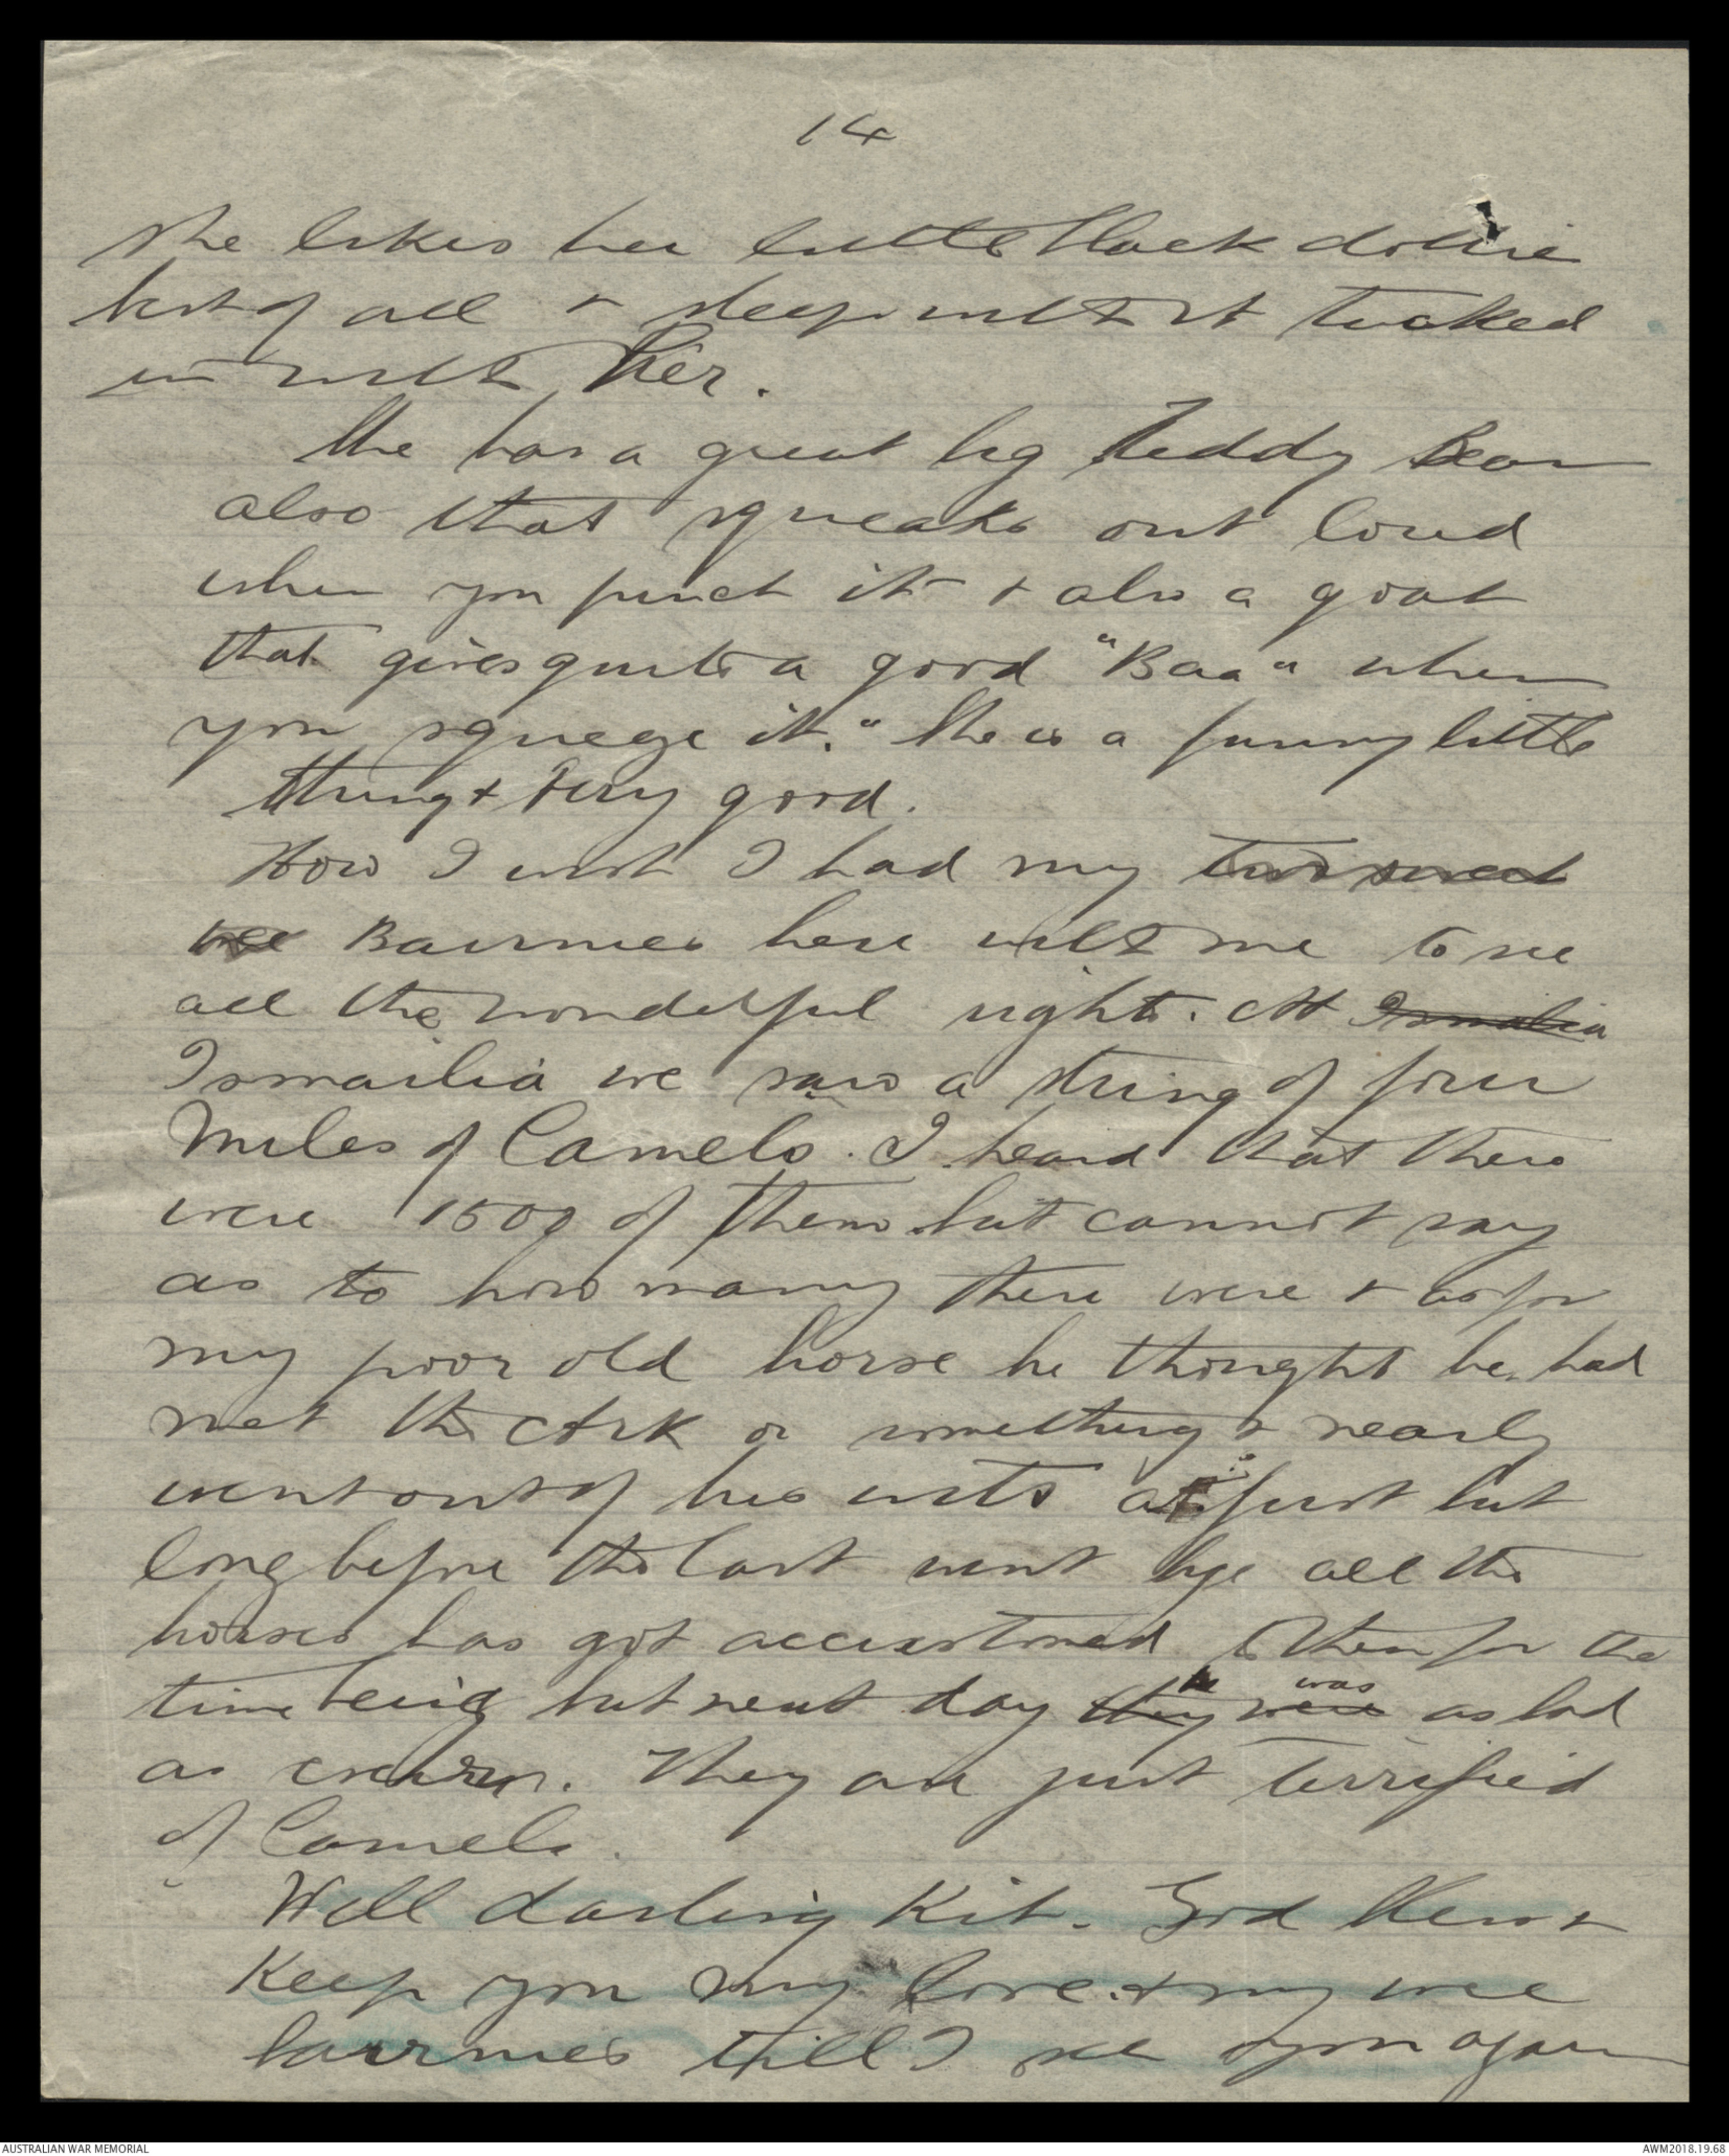 14
She likes her little black dollie
best of all & sleeps with it tucked
in with her.
She has a great big Teddy Bear
also that squeaks out loud
when you punch it & also a goat
that gives quite a good "Baa" when
you squeeze it." She is a funny little
thing & very good.
How I wish I had my two sweet
wee Bairnies here with me to see
all the wonderful sights. At Ismailia
Ismailia we saw a string of four
Miles of Camels. I heard that there
were 1500 of them but cannot say
as to how many there were & as for
my poor old horse he thought he had
met the Ark or something & nearly
went out of his wits at first but
long before the last went bye all the
horses has got accustomed to them for the
time being but next day they he were was as bad
as ever. They are just terrified
of Camels.
Well darling Kit. God bless &
Keep you my love & my wee
bairnies till I see you again
AUSTRALIAN WAR MEMORIAL
AWM2018.19.68